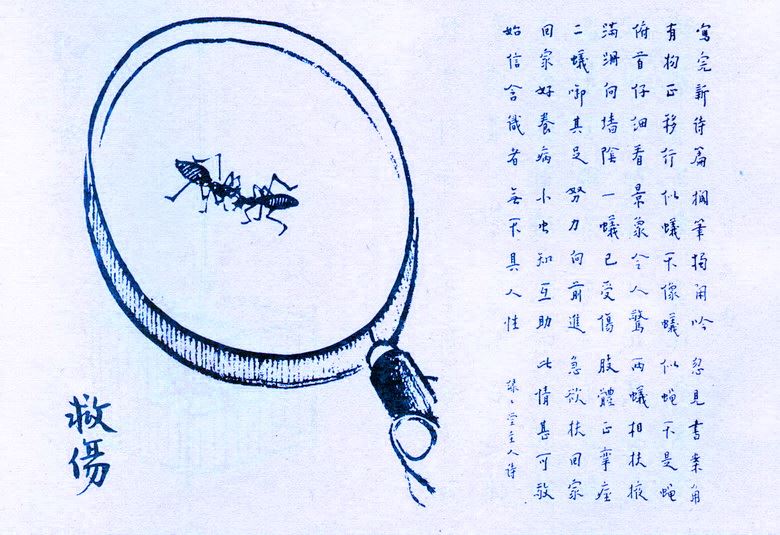 寫完新詩篇 擱筆 吟 忽見書案角
有物正移行 似蟻不像蟻 似蠅不是蠅
俯首仔細看 景象令人驚 兩蟻相扶掖
蹣跚向墻陰 一蟻已受傷 肢體正攣痙
二蟻啣其足 努力向前進 急欲扶回家
回家好養病 小虫知互助 此情甚可敬
始信含識者 無不具人性
緣〻堂主人詩
救傷